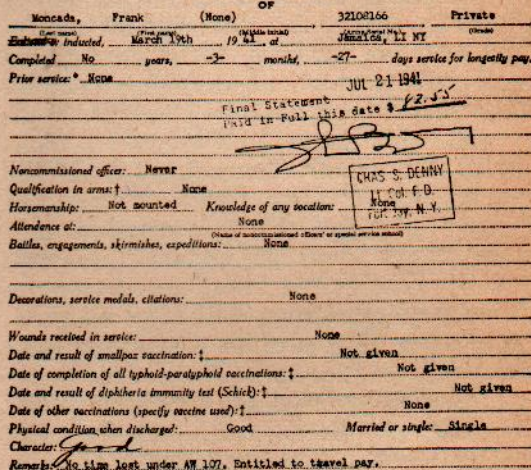 OF
Moncada, Frank (None) 32108166 Private
(Last name) (First name) (Middle initial) (Army serial No.) (Grade)
Enlisted or inducted, March 19th 19 41 at Jamaica, LI NY
Completed No years, -3- months, -27- days service for longevity pay.
Prior service:* None
JUL 21 1941
Final Statement
PAID in Full this date $ 42.55
Noncommissioned officer: Never
CHAS S. DENNY
Lt Col. F.D.
N.Y.
Qualification in arms:† None
Horsemanship: Not mounted Knowledge of any vocation: None
Attendance at: None
(Name of noncommissioned officers' or special service school)
Battles, engagements, skirmishes, expeditions: None
Decorations, service medals, citations: None
Wounds received in service: None
Date and result of smallpox vaccination:‡ Not given
Date of completion of all typhoid-paratyphoid vaccinations:‡ Not given
Date and result of diphtheria immunity test (Schick):‡ Not given
Date of other vaccinations (specify vaccine used):‡ None
Physical condition when discharged: Good Married or single: Single
Character: Good
Remarks: No time lost under AW 107. Entitled to travel pay.